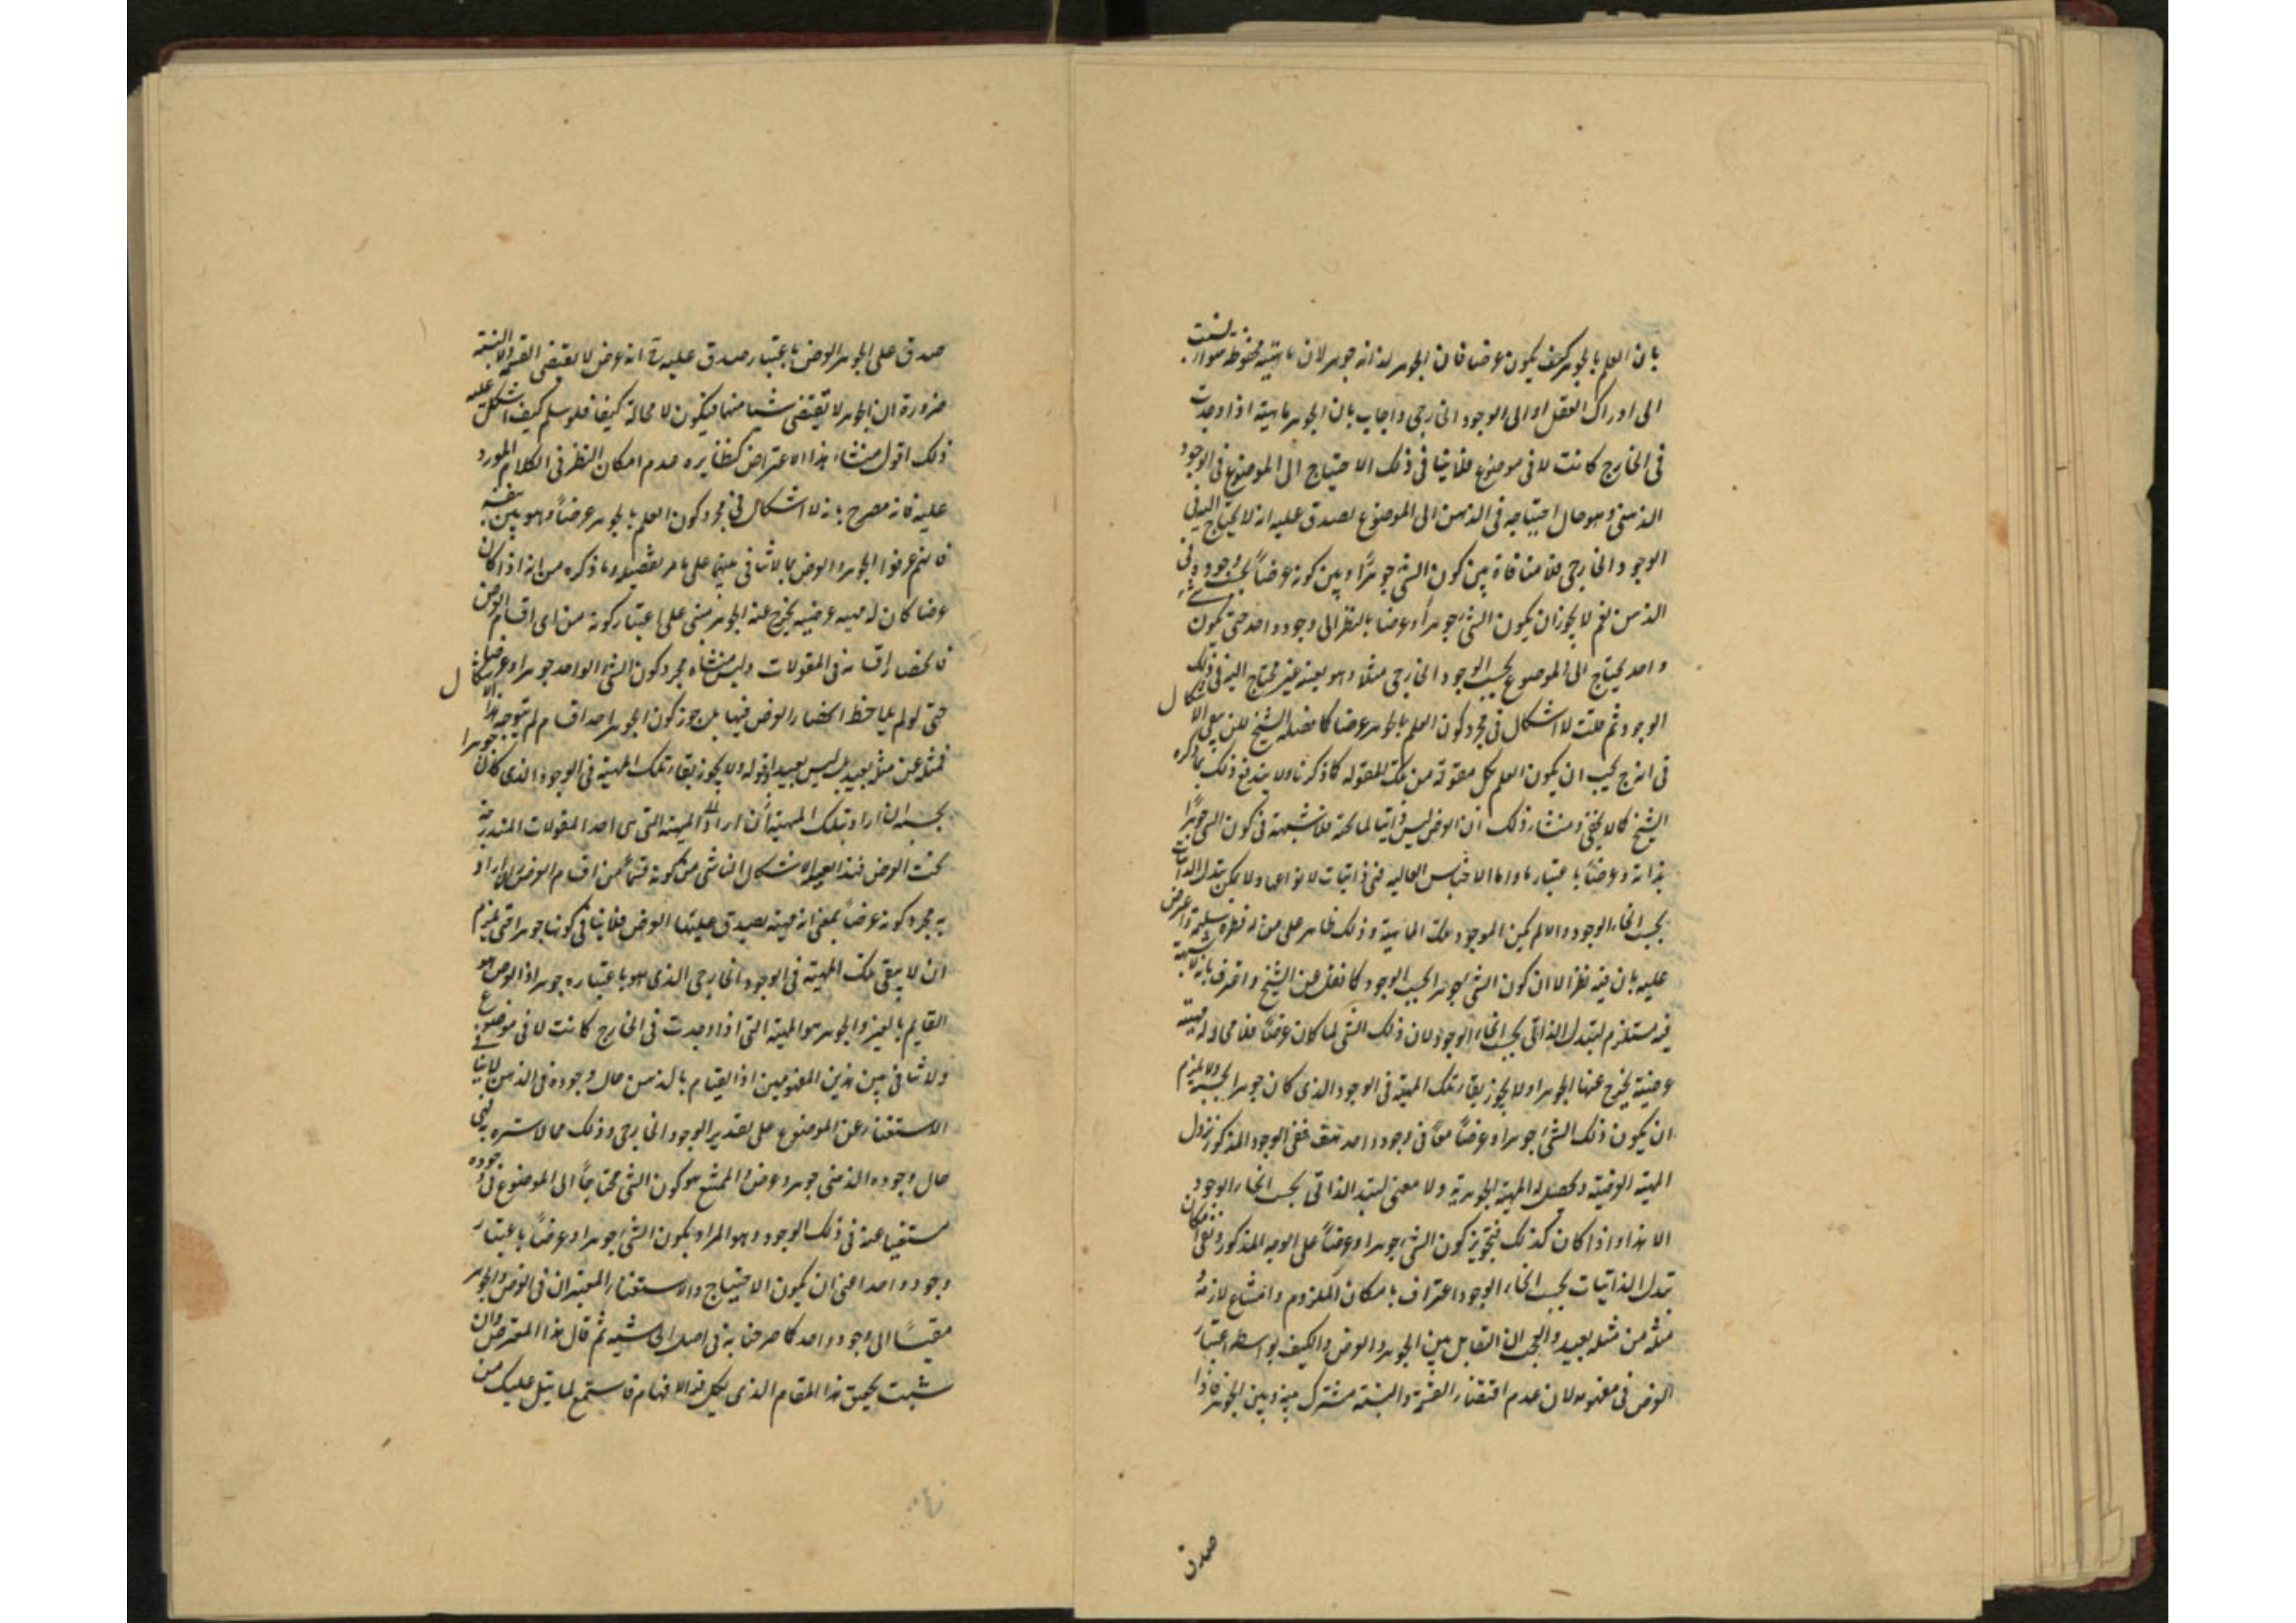 بان العلم بالجوهر كيف يكون عرضا فان الجوهر لذاته جوهر لان ماهيته محفوظة سواء نسبت
الى ادراك العقل او الى الوجود الخارجي واجاب بان الجوهر ماهية اذا وجدت
في الخارج كانت لا في موضوع فلا ينافي ذلك الاحتياج الى الموضوع في الوجود
الذهني وهو حال احتياجه في الذهن الى الموضوع يصدق عليه انه لا يحتاج اليه في
الوجود الخارجي فلا منافاة بين كون الشئ جوهرا وبين كونه عرضا بحسب وجوده في
الذهن نعم لا يجوز ان يكون الشئ جوهرا وعرضا بالنظر الى وجود واحد حتى يكون شئ
واحد يحتاج الى الموضوع بحسب الوجود الخارجي مثلا وهو بعينه غير محتاج اليه في ذلك
الوجود ثم قلت لا اشكال في مجرد كون العلم بالجوهر عرضا كما فصله الشيخ لكن بقي الاشكال
في انه يجب ان يكون العلم بكل مقولة من تلك المقولة كما ذكرنا ولا يندفع ذلك بما ذكره
الشيخ كما لا يخفى ومنشاء ذلك ان العرض ليس ذاتيا لما تحته فلا شبهة في كون الشئ جوهرا
بذاته وعرضا باعتبار واما الاجناس العالية فهي ذاتيات لانواعها ولا يمكن تبدل الذاتيات
بحسب انحاء الوجود والا لم يكن الموجود تلك الماهية وذلك ظاهر على من له فطرة سليمة واعترض
عليه بان فيه نظرا لان كون الشئ جوهرا بحسب الوجود كما نقل عن الشيخ واعترف بانه لا شبهة
فيه مستلزم لتبدل الذاتي بحسب انحاء الوجود لان ذلك الشئ لما كان عرضا فلا محالة له مهية
عرضية يخرج عنها الجوهر ولا يجوز بقاء تلك المهية في الوجود الذي كان جوهرا بحسبه والا يلزم
ان يكون ذلك الشئ جوهرا وعرضا معا في وجود واحد هف ففي الوجود المذكور تزول
المهية العرضية وتحصل له المهية الجوهرية ولا معنى لتبدل الذاتي بحسب انحاء الوجود
الا هذا واذا كان كذلك فتجويز كون الشئ جوهرا وعرضا على الوجه المذكور ونفي امكان
تبدل الذاتيات بحسب انحاء الوجود اعتراف بامكان الملزوم وامتناع لازمه
فمثله من مثله بعيد والعجب ان التقابل بين الجوهر والعرض والكيف بواسطة اعتبار
العرض في مفهومه لان عدم اقتضاء القسمة والنسبة مشترك بينه وبين الجوهر فاذا
صدق
صدق على الجوهر العرض باعتبار صدق عليه انه عرض لا يقتضي القسمة والنسبة
ضرورة ان الجوهر لا يقتضي شيئا منها فيكون لا محالة كيفا فلو سلم كيف اشكل عليه
ذلك اقول منشاء هذا الاعتراض كنظايره عدم امكان النظر في الكلام المورد
عليه فانه مصرح بانه لا اشكال في مجرد كون العلم بالجوهر عرضا وهو بين بنفسه
فانهم عرفوا الجوهر والعرض بما لا تنافي بينهما على ما مر تفصيله وما ذكره من انه اذا كان
عرضا كان له مهية عرضية يخرج عنه الجوهر مبني على اعتبار كونه من اي اقسام العرض
فانحصار اقسامه في المقولات وليس منشأه مجرد كون الشئ الواحد جوهرا وعرضا
حتى لو لم يلاحظ انحصار العرض فيها بل جوز كون الجوهر احد اقسامه لم يتوجه هذا الاشكال
فمثله عن مثله بعيد بل ليس ببعيد وقوله ولا يجوز بقاء تلك المهية في الوجود الذي كان جوهرا
بحسبه ان اراد بتلك المهية المهية التي هي احد المقولات المندرجة
تحت العرض فهذا بعينه الاشكال الناشي من كونه قسما من اقسام العرض وان اراد
به مجرد كونه عرضا بمعنى انه مهية يصدق عليها العرض فلا ينافي كونها جوهرا حتى يلزم
ان لا يبقى تلك المهية في الوجود الخارجي الذي هو باعتباره جوهر اذ العرض هو
القايم بالغير والجوهر هو المهية التي اذا وجدت في الخارج كانت لا في موضوع
ولا تنافي بين هذين المفهومين اذ القيام بالذهن حال وجوده في الذهن لا ينافي
الاستغناء عن الموضوع على تقدير الوجود الخارجي وذلك مما لا سترة به فهي
حال وجوده الذهني جوهر وعرض والممتنع هو كون الشئ محتاجا الى الموضوع في وجوده
مستغنيا عنه في ذلك الوجود وهو المراد بكون الشئ جوهرا وعرضا باعتبار
وجود واحد اعني ان يكون الاحتياج والاستغناء المعتبران في العرض والجوهر
مقيسا الى وجود واحد كما صرحنا به في اصل الحاشية ثم قال هذا المعترض وان
شئت تحقيق هذا المقام الذي يكل فيه الافهام فاستمع لما يتلى عليك من